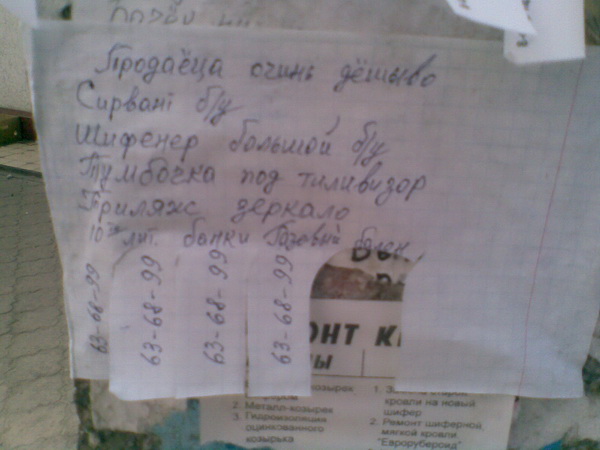 Продаёца очинь дёшыво
Сирвант б/у
Шифенер большой б/у
Тумбочка под тиливизор
Триляжс зеркало
10 лит. банки Газевый
63-68-99
63-68-99
63-68-99
63-68-99
ОНТ К
козырек
2. Металл-козырек
3. Гидроизоляция
оцинкованного
козырька
1.
старой
кровли на новый
шифер
2. Ремонт шиферной,
мягкой кровли.
"Еврорубероид"